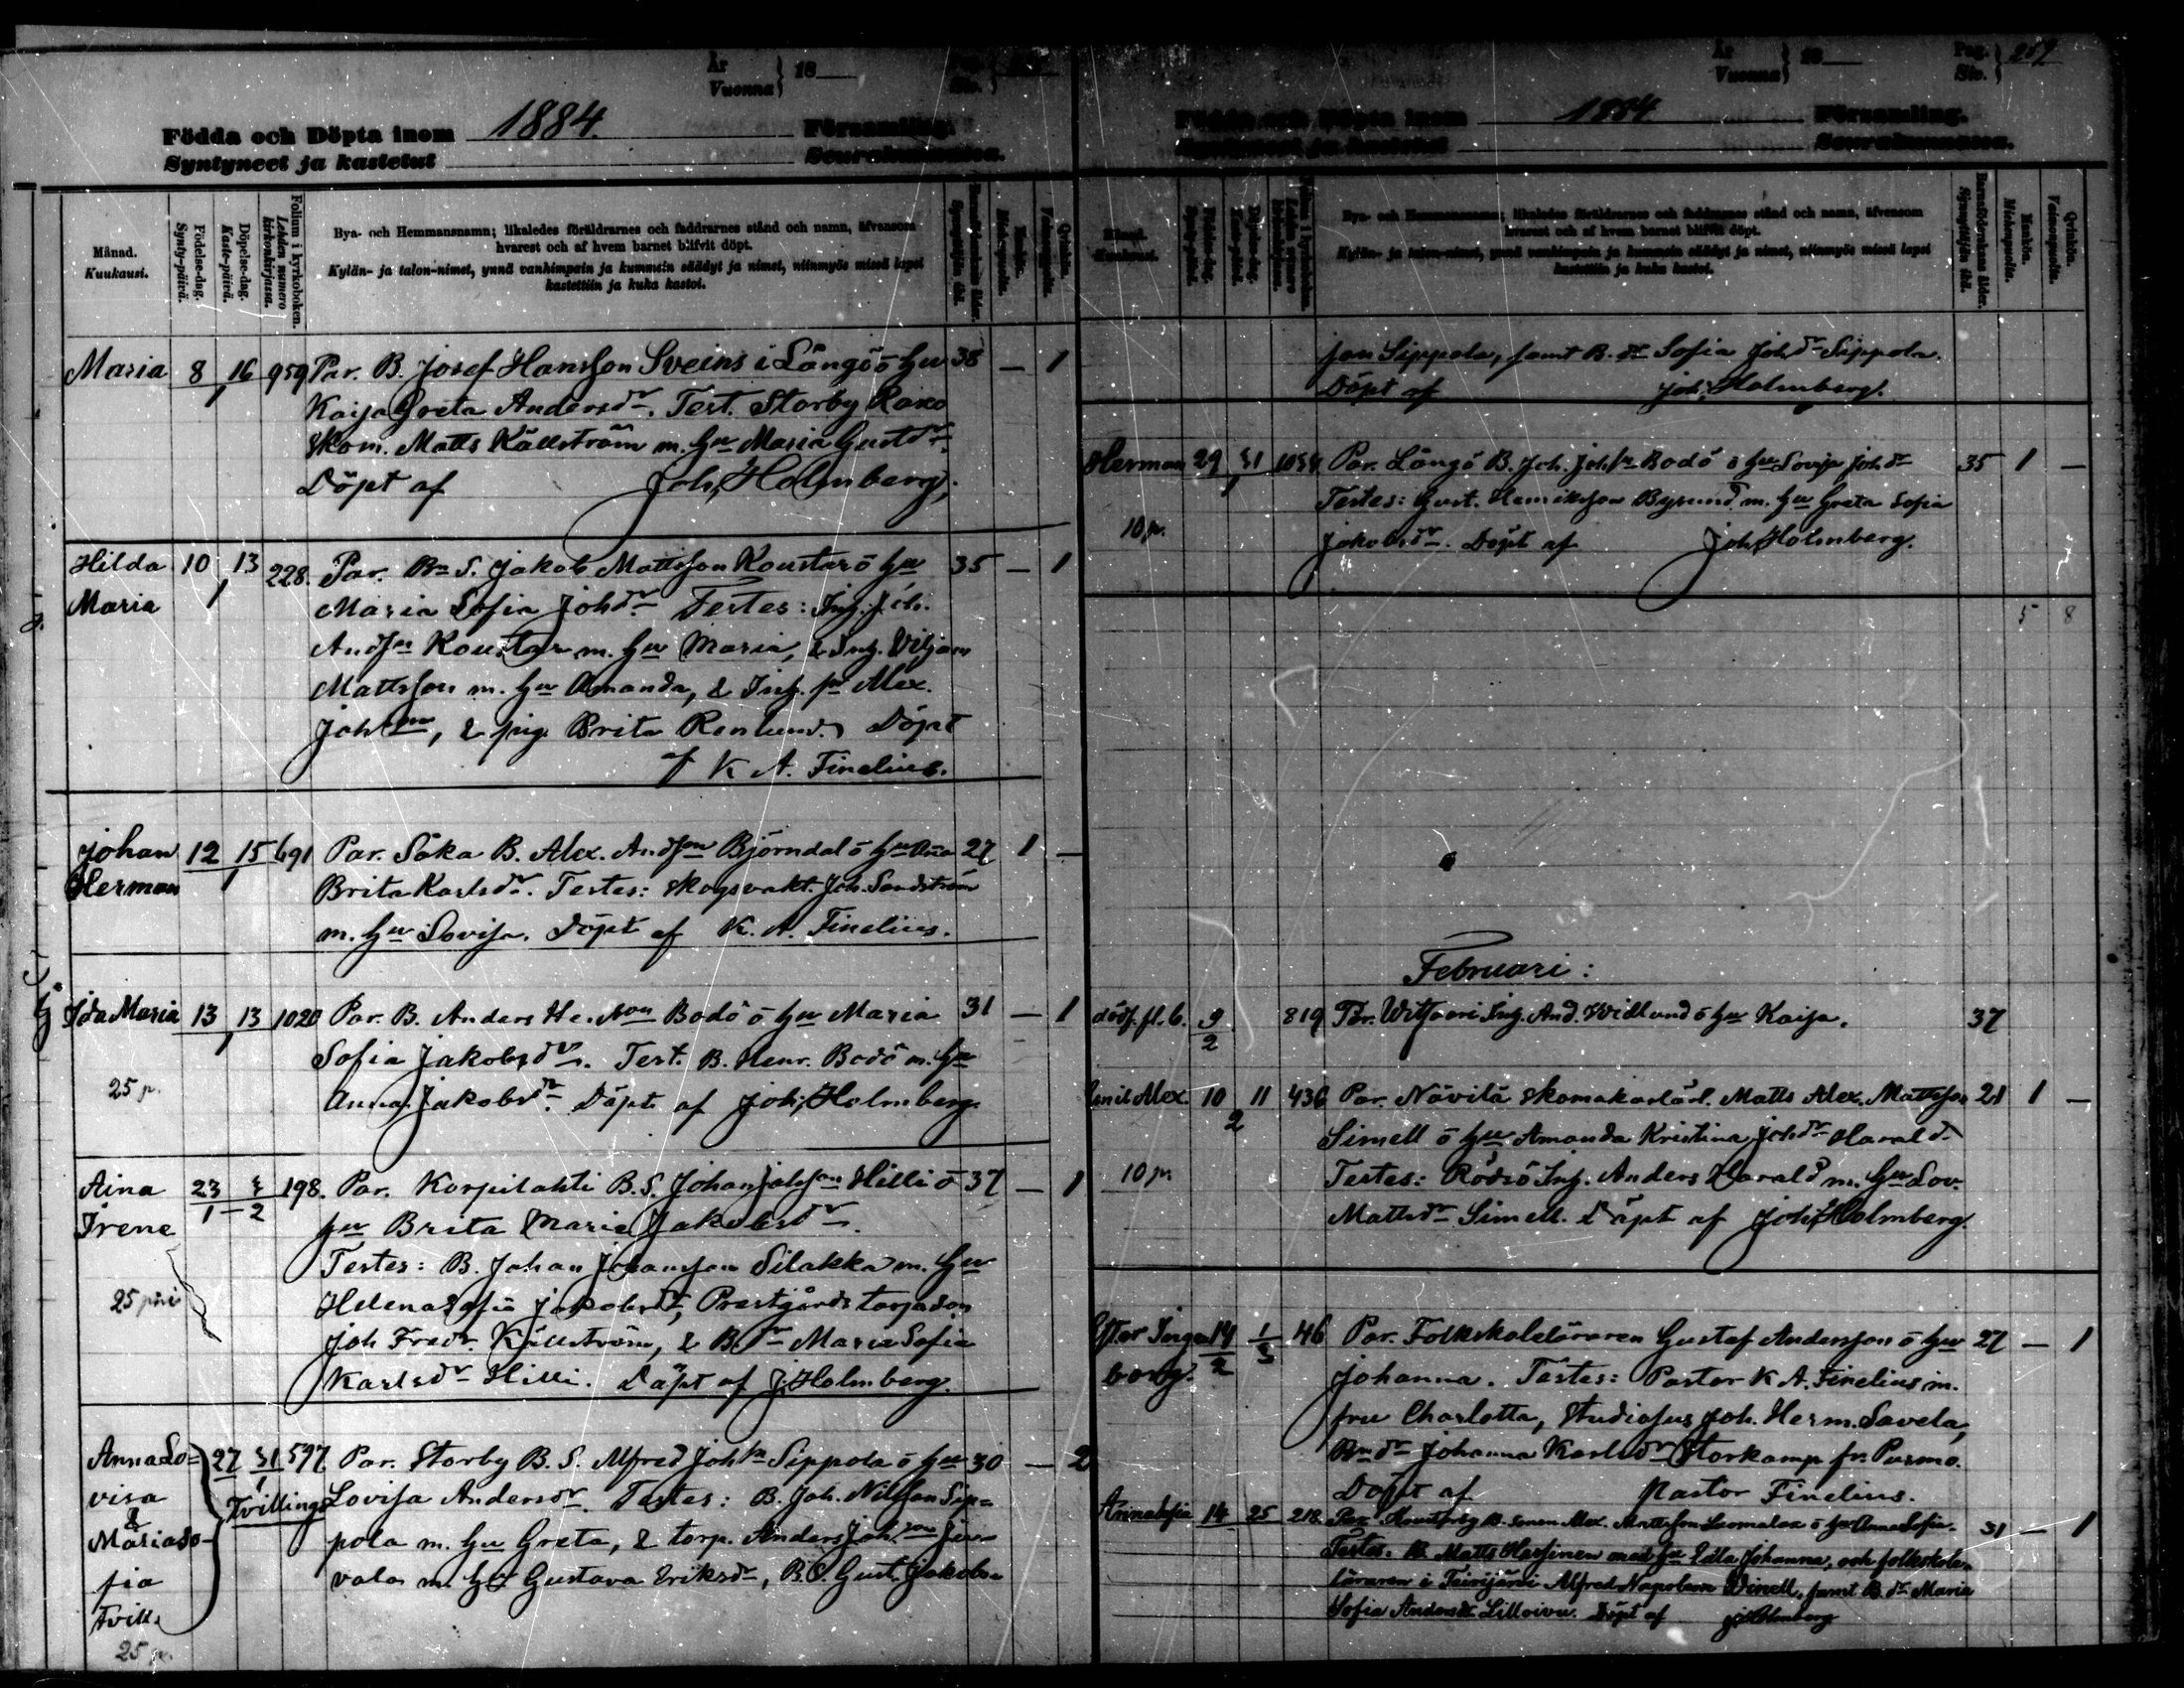 År
Vuonna } 18
Pag.
Siv. }
Födda och Döpta inom 1884. Församling.
Syntyneet ja kastetut Seurakunnassa.
Månad.
Kuukausi.
Födelse-dag.
Synty-päivä.
Döpelse-dag.
Kaste-päivä.
Folium i kyrkoboken.
Lehden numero kirkonkirjassa.
Bya- och Hemmansnamn; likaledes föräldrarnes och faddrarnes stånd och namn, äfvensom
hvarest och af hvem barnet blifvit döpt.
Kylän- ja talon-nimet, ynnä vanhimpain ja kummein säädyt ja nimet, niinmyös missä lapsi
kastettiin ja kuka kastoi.
Barnaföderskans ålder.
Synnyttäjän ikä.
Mankön.
Miehenpuolia.
Qvinkön.
Vaimonpuolia.
Maria 8 16 959 Par. B. Josef Hansson Sveins i Långö ö hu 38 — 1
1 Kaisa Greta Andersdr. Test. Storby
Skom. Matts Källström m. hu Maria Gustdr.
Döpt af Joh. Holmberg.
Hilda 10 13 228. Par. Bn S. Jakob Mattsson Koustar ö hu 35 — 1
Maria 1 Maria Sofia Johdr Testes: Ing. Joh.
Andsn Koustar m. hu Maria, & Ing. Viljam
Mattsson m. hu Amanda, & Ing. Alex.
Johsn, & pig. Brita Renlund. Döpt
af K A. Finelius.
Johan 12 15 691 Par. Såka B. Alex. Andson Björndal ö hu Ana 27 1 —
Herman 1 Brita Karlsdr. Testes: Skogsvakt. Joh. Sandström
m. hu Lovisa. Döpt af K. A. Finelius.
Ida Maria 13 13 1020 Par. B. Anders Bodö ö hu Maria 31 — 1
1 Sofia Jakobsdr. Test. B. Henr. Bodö m. hu
25 p. Anna Jakobsdr. Döpt af Joh. Holmberg.
Aina 23/1 — 3/2 198. Par. Korpilahti B. S. Johan Johsson Hilli ö 37 — 1
Irene hu Brita Maria Jakobsdr.
Testes: B. Johan Johansson Silakka m. hu
25 p. Helena Sofia Jakobsdr, Prestgårds torpason
Joh Fredr. Källström, & B. dr Maria Sofia
Karlsdr Hilli. Döpt af J. Holmberg.
Anna Lo= 27 31 597 Par. Storby B. S. Alfred Johsn Sippola ö hu 30 — 2
visa 1 Tvillings Lovisa Andersdr. Testes: B. Joh. Nilsson Sip=
& pola m. hu Greta, & torp. Anders Johson Ju-
Maria So- vala m. hu Gustava Eriksdr, B. S. Gust. Jakobs-
fia
Tvill.
25 p.
År
Vuonna } 18
Pag.
Siv. } 259
Födda och Döpta inom 1884 Församling.
Syntyneet ja kastetut Seurakunnassa.
Månad.
Kuukausi.
Födelse-dag.
Synty-päivä.
Döpelse-dag.
Kaste-päivä.
Folium i kyrkoboken.
Lehden numero kirkonkirjassa.
Bya- och Hemmansnamn; likaledes föräldrarnes och faddrarnes stånd och namn, äfvensom
hvarest och af hvem barnet blifvit döpt.
Kylän- ja talon-nimet, ynnä vanhimpain ja kummein säädyt ja nimet, niinmyös missä lapsi
kastettiin ja kuka kastoi.
Barnaföderskans ålder.
Synnyttäjän ikä.
Mankön.
Miehenpuolia.
Qvinkön.
Vaimonpuolia.
son Sippola, samt B. dr Sofia Johdr Sippola.
Döpt af Joh. Holmberg.
Herman 29 31 1034 Par. Långö B. Joh. Johsn Bodö ö hu Lovisa Johdr 35 1 —
1 Testes: Gust. Henriksson Bysund m. hu Greta Sofia
10 p. Jakobsdr. Döpt af Joh. Holmberg.
5 8
Februari:
dödf. fl. b. 9/2 819 Par. Witsaari Ing. And. Widlund ö hu Kaisa. 37
Emil Alex. 10 11 436 Par. Nävilä skomakarlärl. Matts Alex. Mattsson 21 1 —
2 Simell ö hu Amanda Kristina Johdr Harald
10 p. Testes: Rödsö Ing. Anders Harald m. hu Lov.
Mattsdr Simell. Döpt af Joh. Holmberg.
Ester Inge 14/2 1/3 46 Par. Folkskoleläraren Gustaf Andersson ö hu 27 — 1
borg. Johanna. Testes: Pastor K A. Finelius m.
fru Charlotta, Studiosus Joh. Herm. Savela,
Bn dr Johanna Karlsdr Storkamp fr. Purmo.
Döpt af Pastor Finelius.
Anna Sofia 14 25 218 Par. B. sonen Alex. Mattsson ö hu Anna Sofia. 31 — 1
Testes. B. Matts Hassinen med hu Edla Johanna, och folkskole-
läraren i Teirijärvi Alfred Napoleon Winell, samt B. dr Maria
Sofia Andersdr Lilloivu. Döpt af J. Holmberg